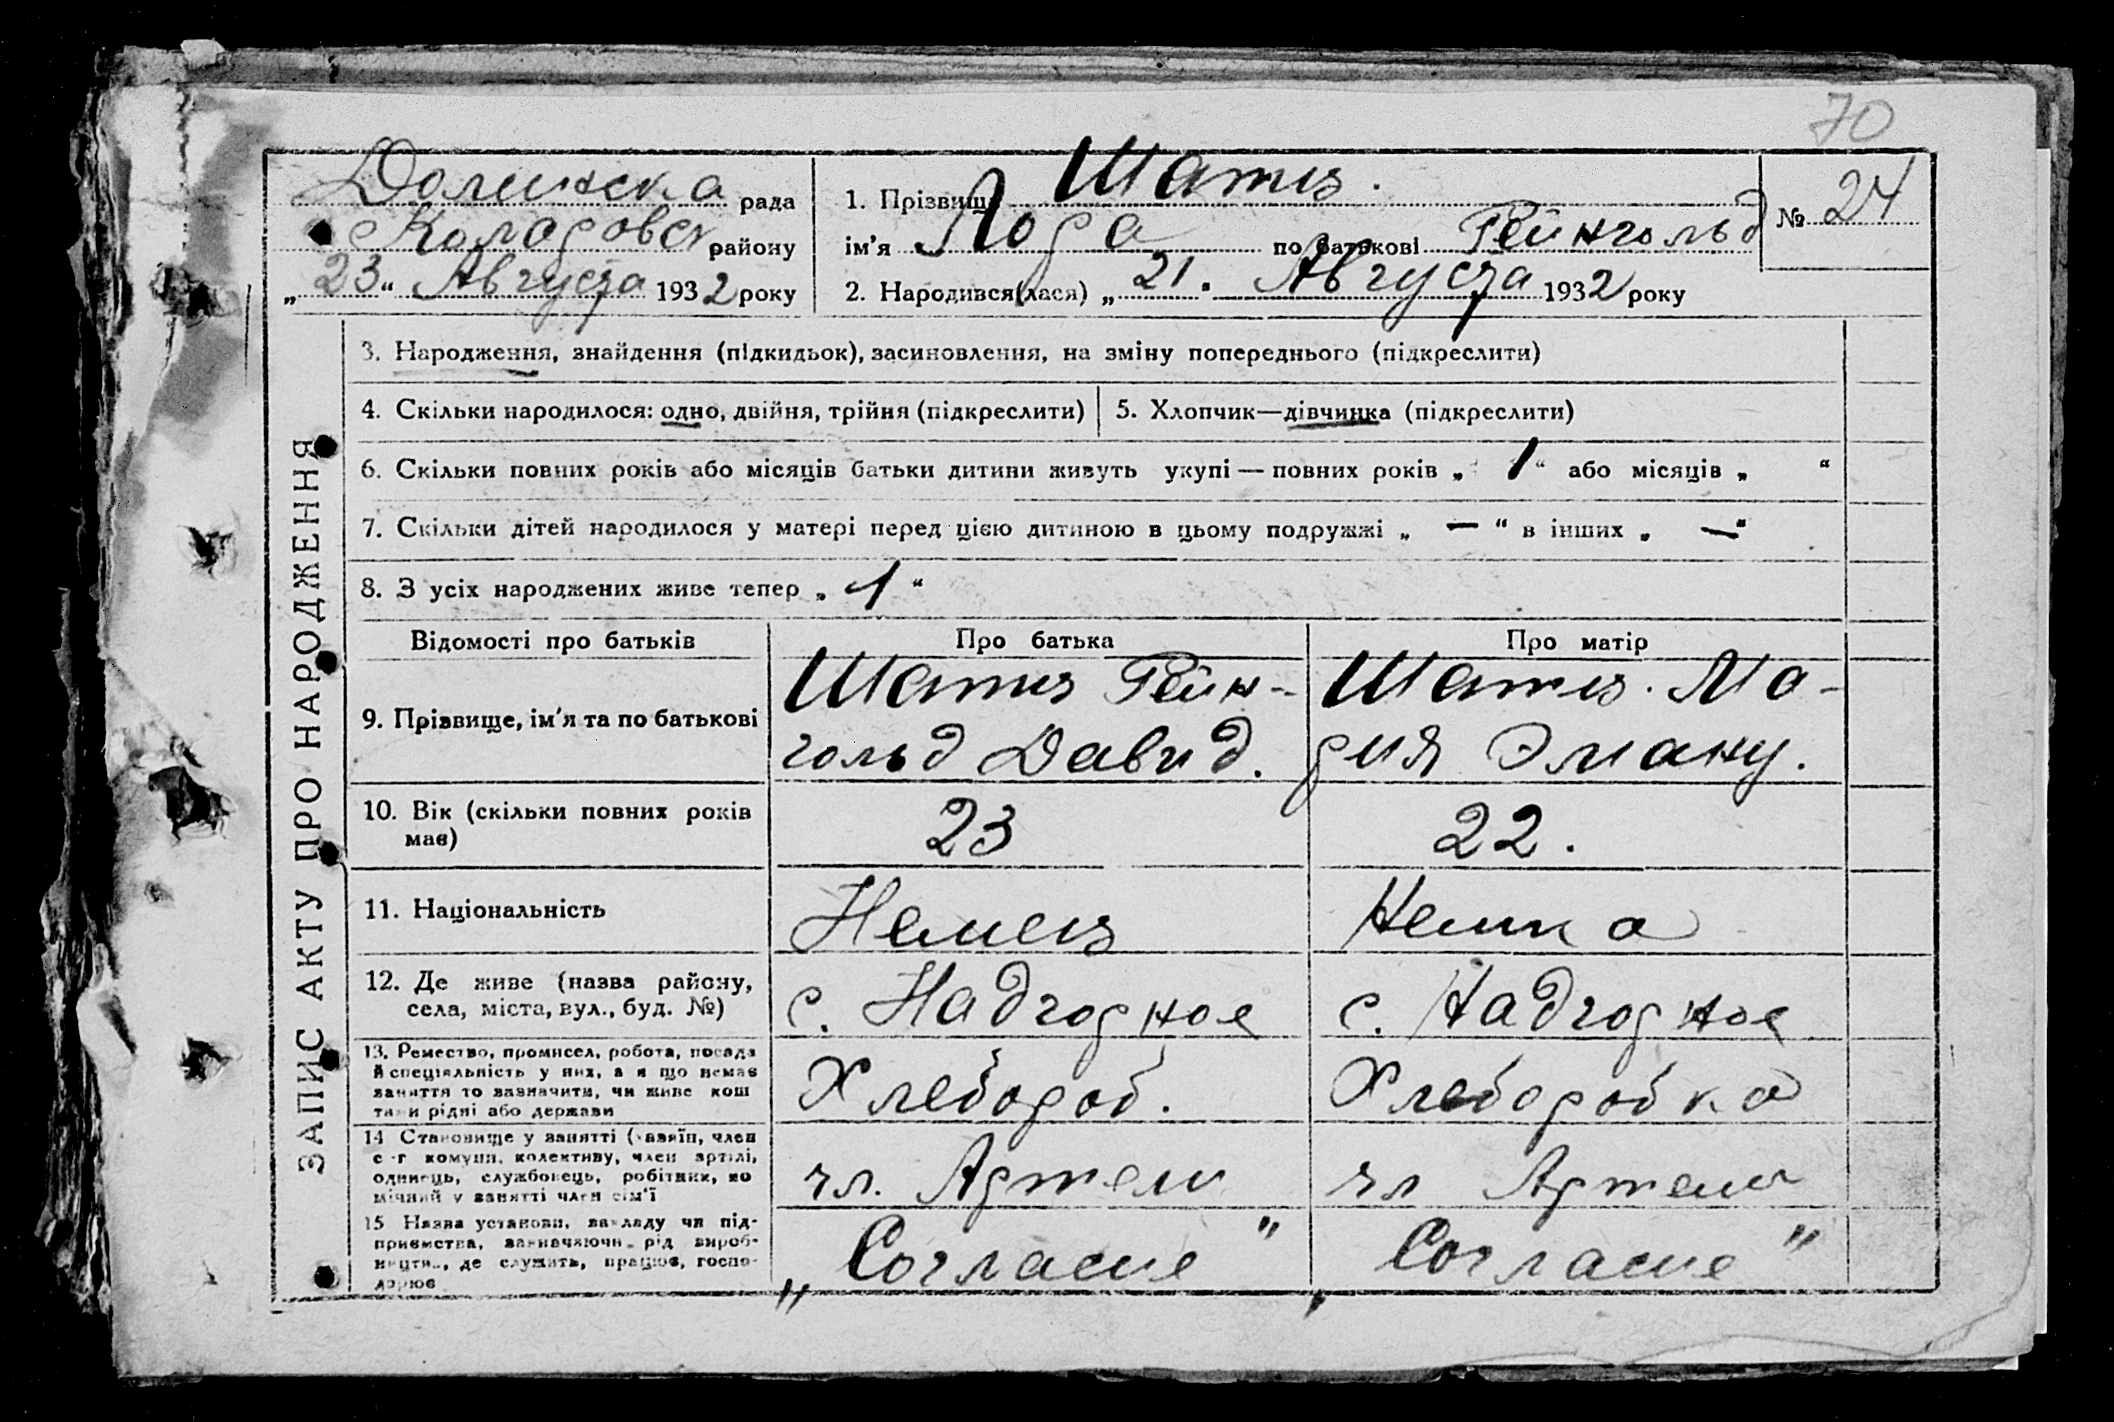 70
Долинска рада
Коларовск району
„23“ Августа 1932 року
1. Прізвище Шатц.
ім'я Лора по батькові Рейнгольд
2. Народився(лася) „21“ Августа 1932 року
№ 24
ЗАПИС АКТУ ПРО НАРОДЖЕННЯ
3. Народження, знайдення (підкидьок), засиновлення, на зміну попереднього (підкреслити)
4. Скільки народилося: одно, двійня, трійня (підкреслити)
5. Хлопчик—дівчинка (підкреслити)
6. Скільки повних років або місяців батьки дитини живуть укупі — повних років „1“ або місяців „ “
7. Скільки дітей народилося у матері перед цією дитиною в цьому подружжі „—“ в інших „—“
8. З усіх народжених живе тепер „1“
Відомості про батьків Про батька Про матір
9. Прізвище, ім'я та по батькові
Шатц Рейн-
гольд Давид.
Шатц. Ма-
рия Эману.
10. Вік (скільки повних років
має)
23
22.
11. Національність
Немец
Немка
12. Де живе (назва району,
села, міста, вул., буд. №)
с. Надгорное
с. Надгорное
13. Ремество, промисел, робота, посада
й спеціяльність у них, а я що немає
заняття то зазначити, чи живе кош
тами рідні або держави
Хлебороб.
Хлеборобка
14 Становище у занятті (хазяїн, член
с-г комуни, колективу, член артілі,
одинець, службовець, робітник, по
мічний у занятті член сім'ї
чл. Артели
чл Артели
15 Назва установи, закладу чи під-
приємства, зазначаючи рід вироб-
ництв., де служить, працює, госпо-
дарює
„Согласие"
„Согласие"